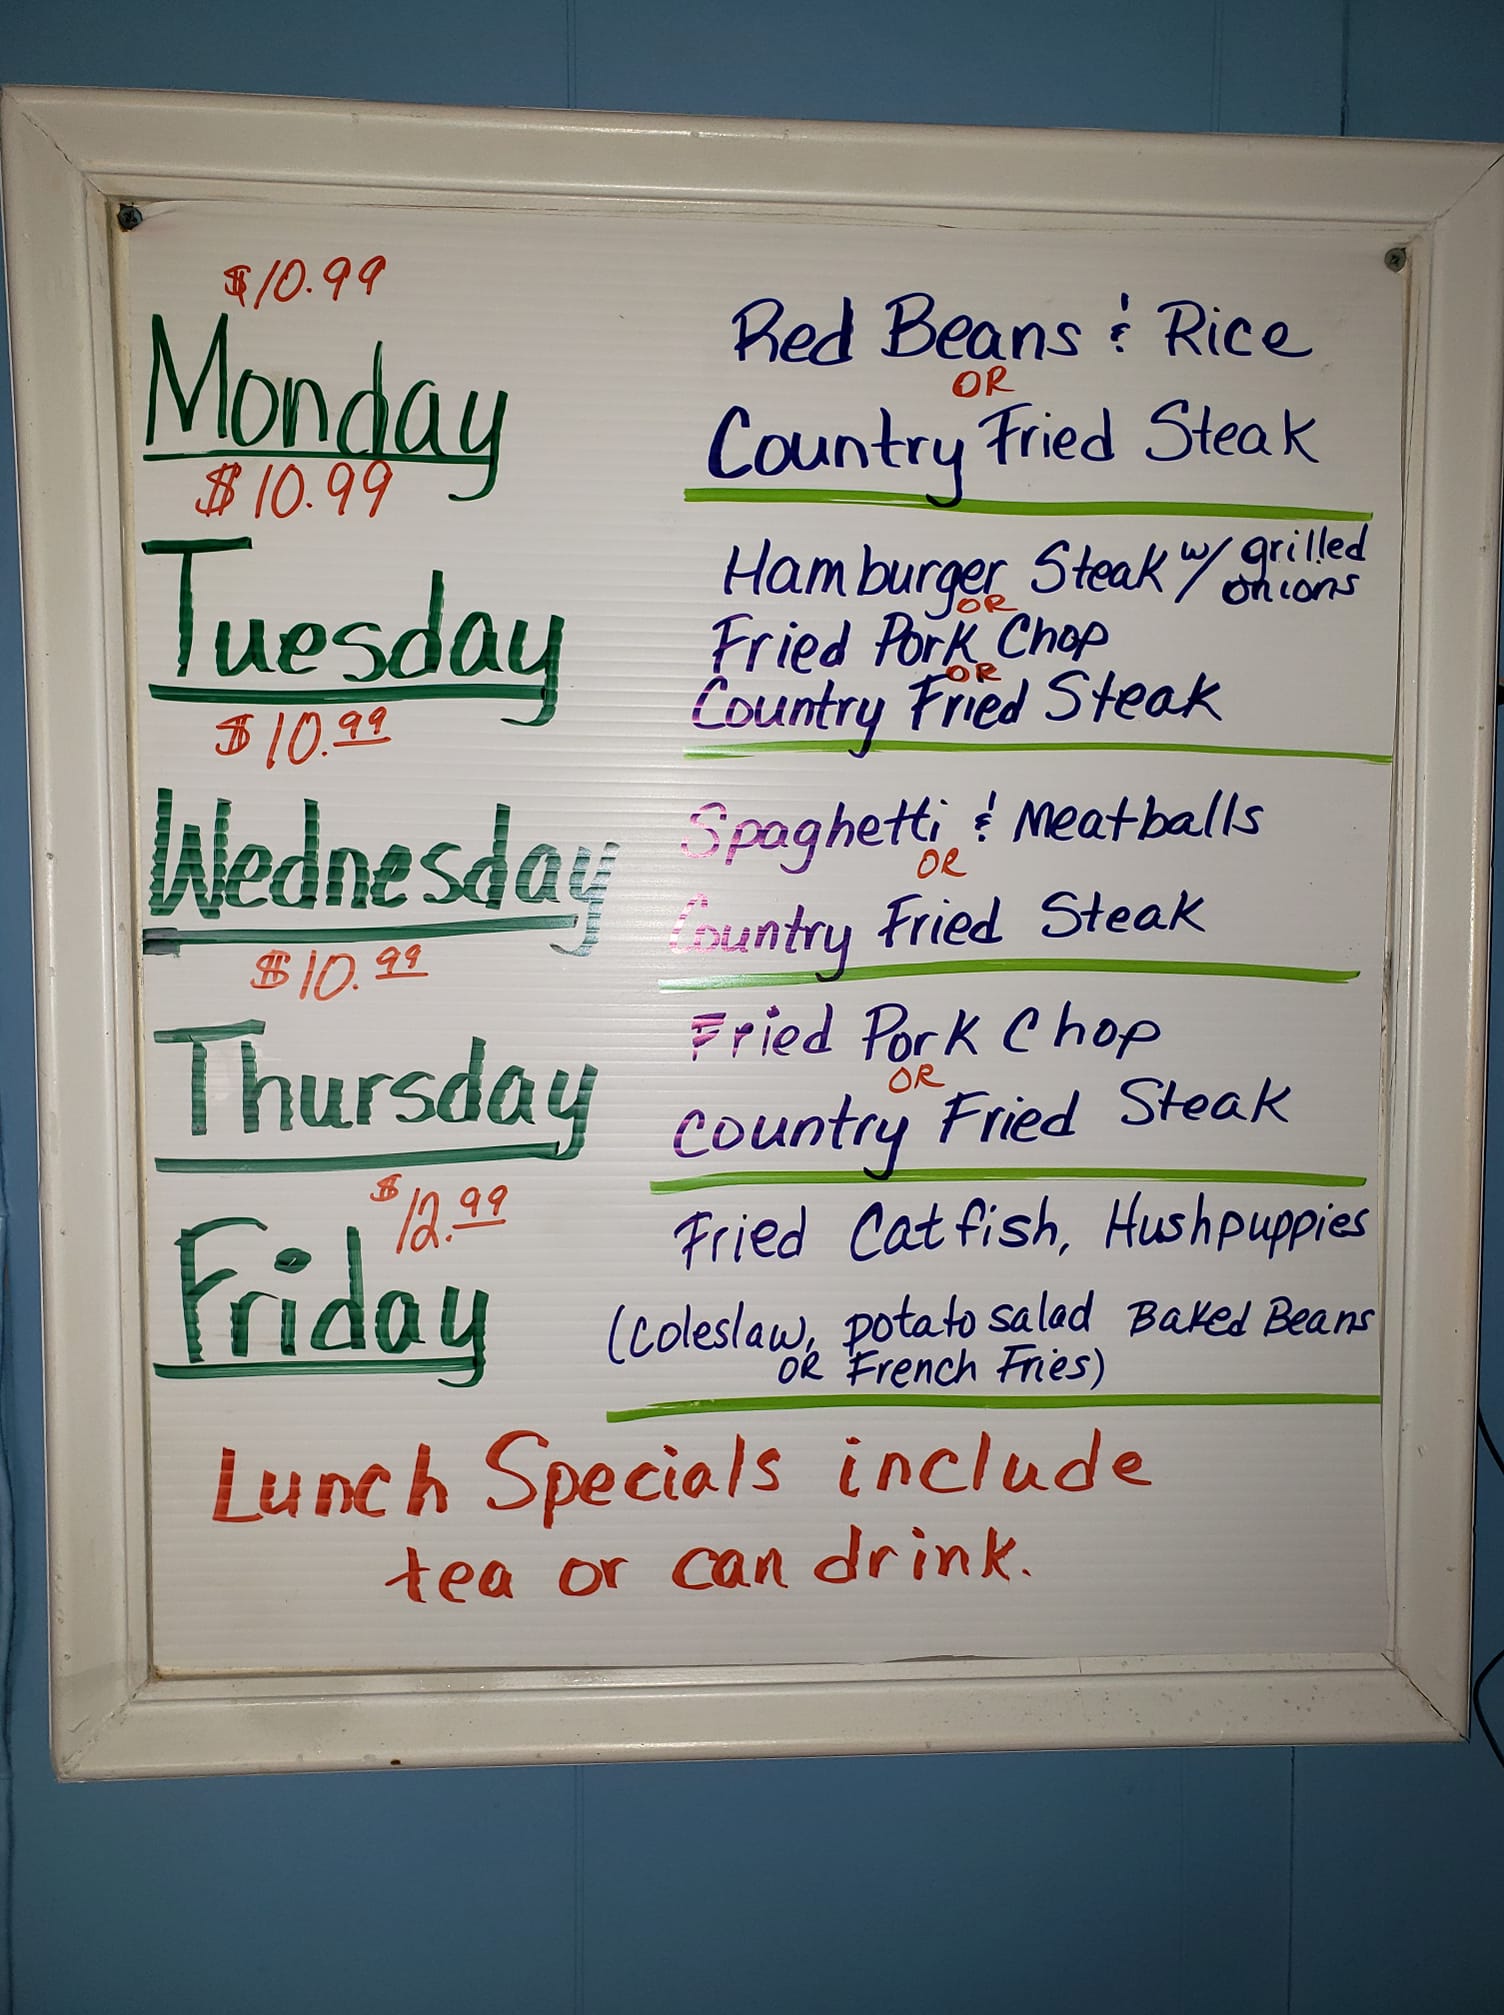 $10.99
Monday
Red Beans & Rice
OR
Country Fried Steak
$10.99
Tuesday
Hamburger Steak w/ grilled onions
OR
Fried Pork Chop
OR
Country Fried Steak
$10.99
Wednesday
Spaghetti & Meatballs
OR
Country Fried Steak
$10.99
Thursday
Fried Pork Chop
OR
Country Fried Steak
$12.99
Friday
Fried Catfish, Hushpuppies
(Coleslaw, potato salad Baked Beans
OR French Fries)
Lunch Specials include
tea or can drink.